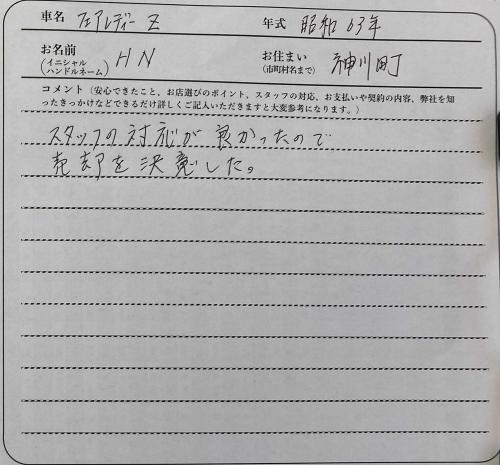 車名 フェアレディーZ 年式 昭和63年
お名前 (イニシャル ハンドルネーム) HN お住まい (市町村名まで) 神川町
コメント(安心できたこと、お店選びのポイント、スタッフの対応、お支払いや契約の内容、弊社を知
ったきっかけなどできるだけ詳しくご記入いただきますと大変参考になります。)
スタッフの対応が良かったので
売却を決意した。